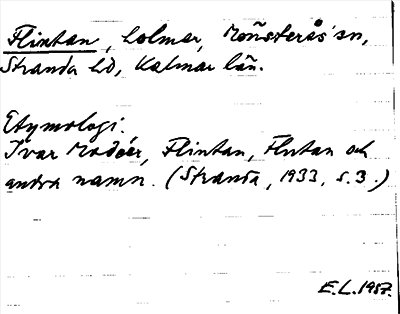 Flintan, holmar, Mönsterås sn,
Stranda hd, Kalmar län.
Etymologi.
Ivar Modéer, Flintan, Flutan och
andra namn. (Stranda, 1933, s. 3.)
E.L. 1957.